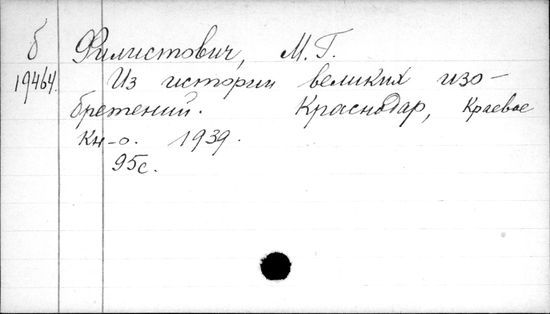 б Филистович, М.Г.
19464. Из истории великих изо-
бретений. Краснодар, Краевое
кн-о. 1939.
95с.